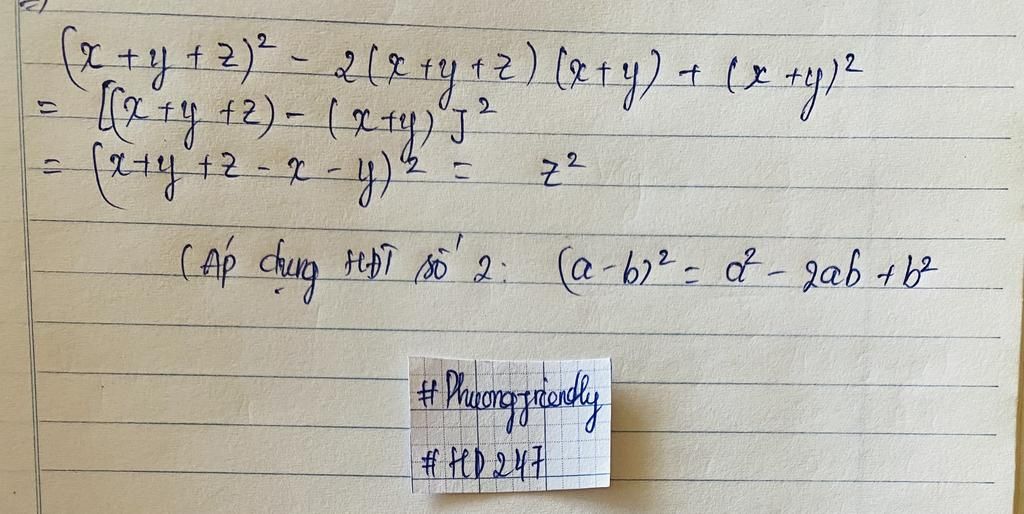 (x + y + z)² - 2(x + y + z)(x + y) + (x + y)²
= [(x + y + z) - (x + y)]²
= (x + y + z - x - y)² = z²
(Áp dụng HĐT số 2: (a - b)² = a² - 2ab + b²
# Phuongfriendly
# HD 247